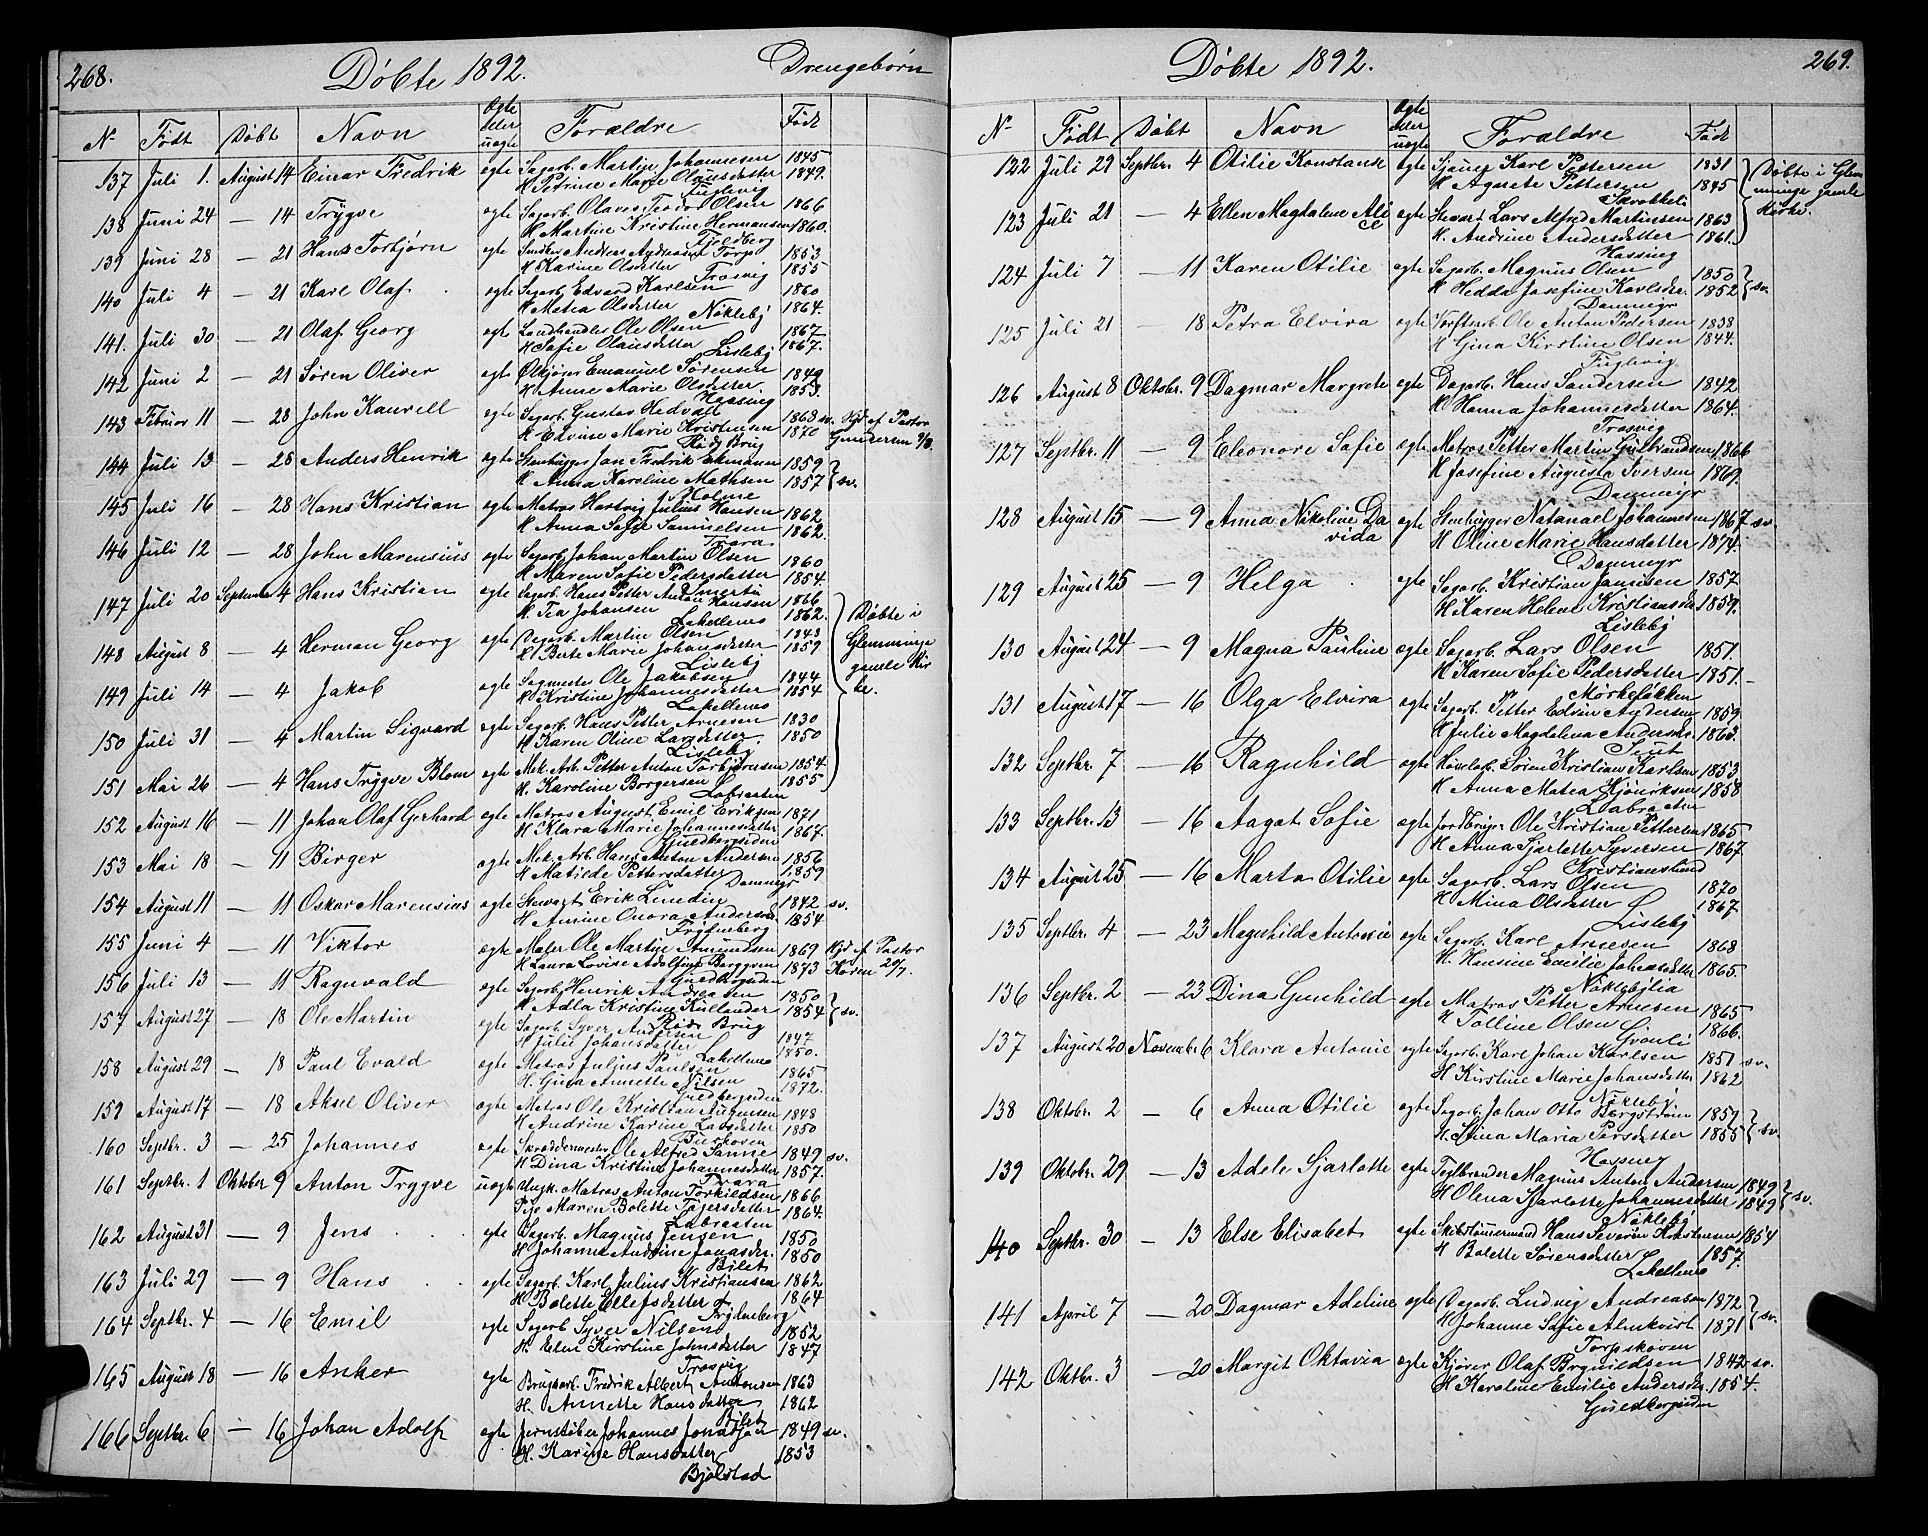 268. Döbte 1892. Drengebörn
No Födt Döbt Navn Ægte eller uægte Forældre Födt
137 Juli 1. August 14 Einar Fredrik ægte Sagarb. Martin Johannesen 1845
H. Petrine Marie Olausdatter 1849.
Fuglevig
138 Juni 24 — 14 Trygve ægte Sagarb. Olaves Teodor Olsen 1866
H. Martine Kristine Hermansen 1860.
Fjeldberg
139 Juni 28 — 21 Hans Torbjörn ægte Smeden Andreas Andreasen Torp 1853
H. Karine Olsdatter 1855
Trosvig
140 Juli 4 — 21 Karl Olaf ægte Sagarb. Edvard Karlsen 1860
H. Matea Olsdatter 1864.
Nökleby
141. Juli 30 — 21 Olaf Georg ægte Landhandler Ole Olsen 1867
H. Sofie Olausdatter 1867.
Lisleby
142 Juni 2 — 21 Sören Oliver ægte Ölkjörer Emanuel Sörensen 1849
H. Anne Marie Olsdatter 1853.
Hassing
143 Februar 11 — 28 John Kaurell ægte Sagarb. Gustav Hedvall 1868 sv. Hjd af Pastor
H. Edvine Marie Kristensen 1870 Gundersen
Röds Brug
144 Juli 13 — 28 Anders Henrik ægte Stenhugger Jon Fredrik Ekmann 1859
H. Anna Karoline Mathsen 1857 } sv.
Holme
145 Juli 16 — 28 Hans Kristian ægte Matros Hartvig Julius Hansen 1862
H. Anna Sofie Samuelsen 1862.
Trara
146 Juli 12 — 28 John Marensius ægte Sagarb. Johan Martin Olsen 1860
H. Maren Sofie Pedersdatter 1854.
147 Juli 20 September 4 Hans Kristian ægte Sagarb. Hans Petter Anton Hansen 1866
H. Tea Johansen 1862.
Lakellemo
148 August 8 — 4 Herman Georg ægte Dagarb. Martin Olsen 1843
H. Berte Marie Johansdatter 1859
Lisleby
149 Juli 14 — 4 Jakob ægte Sagmester Ole Jakobsen 1844
H. Kristine Johannesdatter 1854
Lakellemo
150 Juli 31 — 4 Martin Sigvard ægte Sagarb. Hans Petter Arnesen 1830
H. Karen Oline Larsdatter 1850
Lisleby
151 Mai 26 — 4 Hans Trygve Blom ægte Mek. Arb. Petter Anton Torbjörnsen 1854
H. Karoline Borgersen 1855
Labraaten
Döbte i
Glemminge
gamle Kir
ke.
152 August 16 — 11 Johan Olaf Gerhard ægte Matros August Emil Eriksen 1871
H. Klara Marie Johannesdatter 1867.
Guldbergsiden
153 Mai 18 — 11 Birger ægte Mek. Arb. Hans Anton Andersen 1856
H. Matilde Pettersdatter 1859
Dammyr
154 August 11 — 11 Oskar Marensius ægte Stewart Erik Lundin 1842 sv.
H. Amine Onora Andersd. 1854
Frydenberg
155 Juni 4 — 11 Viktor ægte Maler Ole Martin Amundsen 1869 Hjd af Pastor
H. Laura Lovise Adolfine Berggren 1873 Horen 24/7.
Guldbergsiden
156 Juli 13 — 11 Ragnvald ægte Sagarb. Henrik Andreasen 1850
H. Adla Kristine Kullander 1854 } sv.
Röds Brug
157 August 27 — 18 Ole Martin ægte Sagarb. Syver Andersen 1847
H. Julie Johansdatter 1850.
Lakellemo
158 August 29 — 18 Paul Evald ægte Matros Julius Paulsen 1865
H. Gina Annette Nilsen 1872.
Guldbergsiden
159 August 17 — 18 Aksel Oliver ægte Matros Ole Kristian Augensen 1848
H. Andrine Karine Larsdatter 1850
Buskoven
160 Septbr. 3 — 25 Johannes ægte Skræddermester Ole Alfred Sanne 1849 sv.
H. Dina Kristine Johannesdatter 1857.
Trara
161 Septbr. 1 Oktober 9 Anton Trygve uægte Ungk. Matros Anton Torkildsen 1866
Pige Maren Bolette Tøjersdatter 1864.
Labraaten
162 August 31 — 9 Jens ægte Dagarb. Magnus Jensen 1850
H. Johanne Andrine Jonasdr. 1850
Bilet
163 Juli 29 — 9 Hans ægte Sagarb. Karl Julius Kristiansen 1862
H. Bolette Ellefsdatter 1864
Frydenberg
164 Septbr. 4 — 16 Emil ægte Sagarb. Syver Nilsen 1852
H. Elen Kirstine Johnsdatter 1847
Trosvig
165 August 18 — 16 Anker ægte Brugsarb. Fredrik Albert Antonsen 1863
H. Annette Hansdatter 1862
Bilet
166 Septbr. 6 — 16 Johan Adolf ægte Jernstöber Johannes Jonassen 1849 sv.
H. Karine Hansdatter 1853
Bjölstad
Döbte 1892. 269.
No Födt Döbt Navn Ægte eller uægte Forældre Födt
122 Juli 29 Septbr. 4 Otilie Konstanse ægte Sjauer Karl Pettersen 1831
H. Agnete Pettersen 1845
123 Juli 21 — 4 Ellen Magdalene Ali ægte Stewart Lars Alfred Martinsen 1863
ce H. Andrine Andersdatter 1861.
Hassing
Döbte i Glem
minge gamle
Kirke.
124 Juli 7 — 11 Karen Otilie ægte Sagarb. Magnus Olsen 1850
H. Hedda Josefine Karlsdr. 1852 } sv.
Dammyr
125 Juli 21 — 18 Petra Elvira ægte Værftsarb. Ole Anton Pedersen 1838
H. Gina Kirstine Olsen 1844.
Fuglevig
126 August 8 Oktobr. 9 Dagmar Margrete ægte Dagarb. Hans Sandersen 1842
H. Hanna Johannesdatter 1864.
Trosvig
127 Septbr. 11 — 9 Eleonore Sofie ægte Matros Petter Martin Gulbrandsen 1866
H. Josefine Augusta Iversen 1869.
Dammyr
128 August 15 — 9 Anna Nikoline Da ægte Stenhugger Natanael Johannesen 1867 sv.
vida H. Oline Marie Hansdatter 1874.
Dammyr
129 August 25 — 9 Helga ægte Sagarb. Kristian Jansen 1857
H. Karen Helene Kristiansen 1859.
Lisleby
130 August 24 — 9 Magna Pauline ægte Sagarb. Lars Olsen 1851.
H. Karen Sofie Pedersdatter 1851.
Mörkeløkken
131 August 17 — 16 Olga Elvira ægte Sagarb. Petter Edvin Andersen 1859
H. Julie Magdelena Andersdr. 1863.
Seut
132 Septbr. 7 — 16 Ragnhild ægte Hövelarb. Sören Kristian Karlsen 1853
H. Anna Matea Hjönriksen 1858
Labraaten
133 Septbr. 13 — 16 Aagot Sofie ægte Jordbruger Ole Kristian Pettersen 1865
H. Anna Sjarlotte Syversen 1867
Kristianslund
134 August 25 — 16 Marta Otilie ægte Sagarb. Lars Olsen 1870
H. Mina Olsdatter 1867
Lisleby
135 Septbr. 4 — 23 Magnhild Antonie ægte Sagarb. Karl Arnesen 1868
H. Hansine Emilie Johansdatter 1865.
Nöklebylia
136 Septbr. 2 — 23 Dina Gunhild ægte Matros Petter Arnesen 1865
H. Tolline Olsen 1866.
137 August 20 November 6 Klara Antonie ægte Sagarb. Karl Johan Karlsen 1851 sv.
H. Kirstine Marie Johansdatter 1862
Nökleby
138 Oktobr. 2 — 6 Anna Otilie ægte Sagarb. Johan Otto Bergström 1857
H. Stina Maria Persdatter 1855 } sv.
Hassing
139 Oktobr. 29 — 13 Adele Sjarlotte ægte Teglbrænder Magnus Anton Andersen 1849
H. Olena Sjarlotte Johannesdatter 1849 } sv.
Nökleby
140 Septbr. 30 — 13 Else Elisabet ægte Skibstömmermand Hans Severin Kristensen 1854
H. Bolette Sörensdatter 1857.
Lakellemo
141 April 7 — 20 Dagmar Adeline ægte Dagarb. Ludvig Andreasen 1872
H. Johanne Sofie Almkvist 1871 } sv.
Torpskoven
142 Oktbr. 3 — 20 Margit Oktavia ægte Kjörer Olaf Brynildsen 1842 sv.
H. Karoline Emilie Andersdr. 1854.
Guldbergsiden